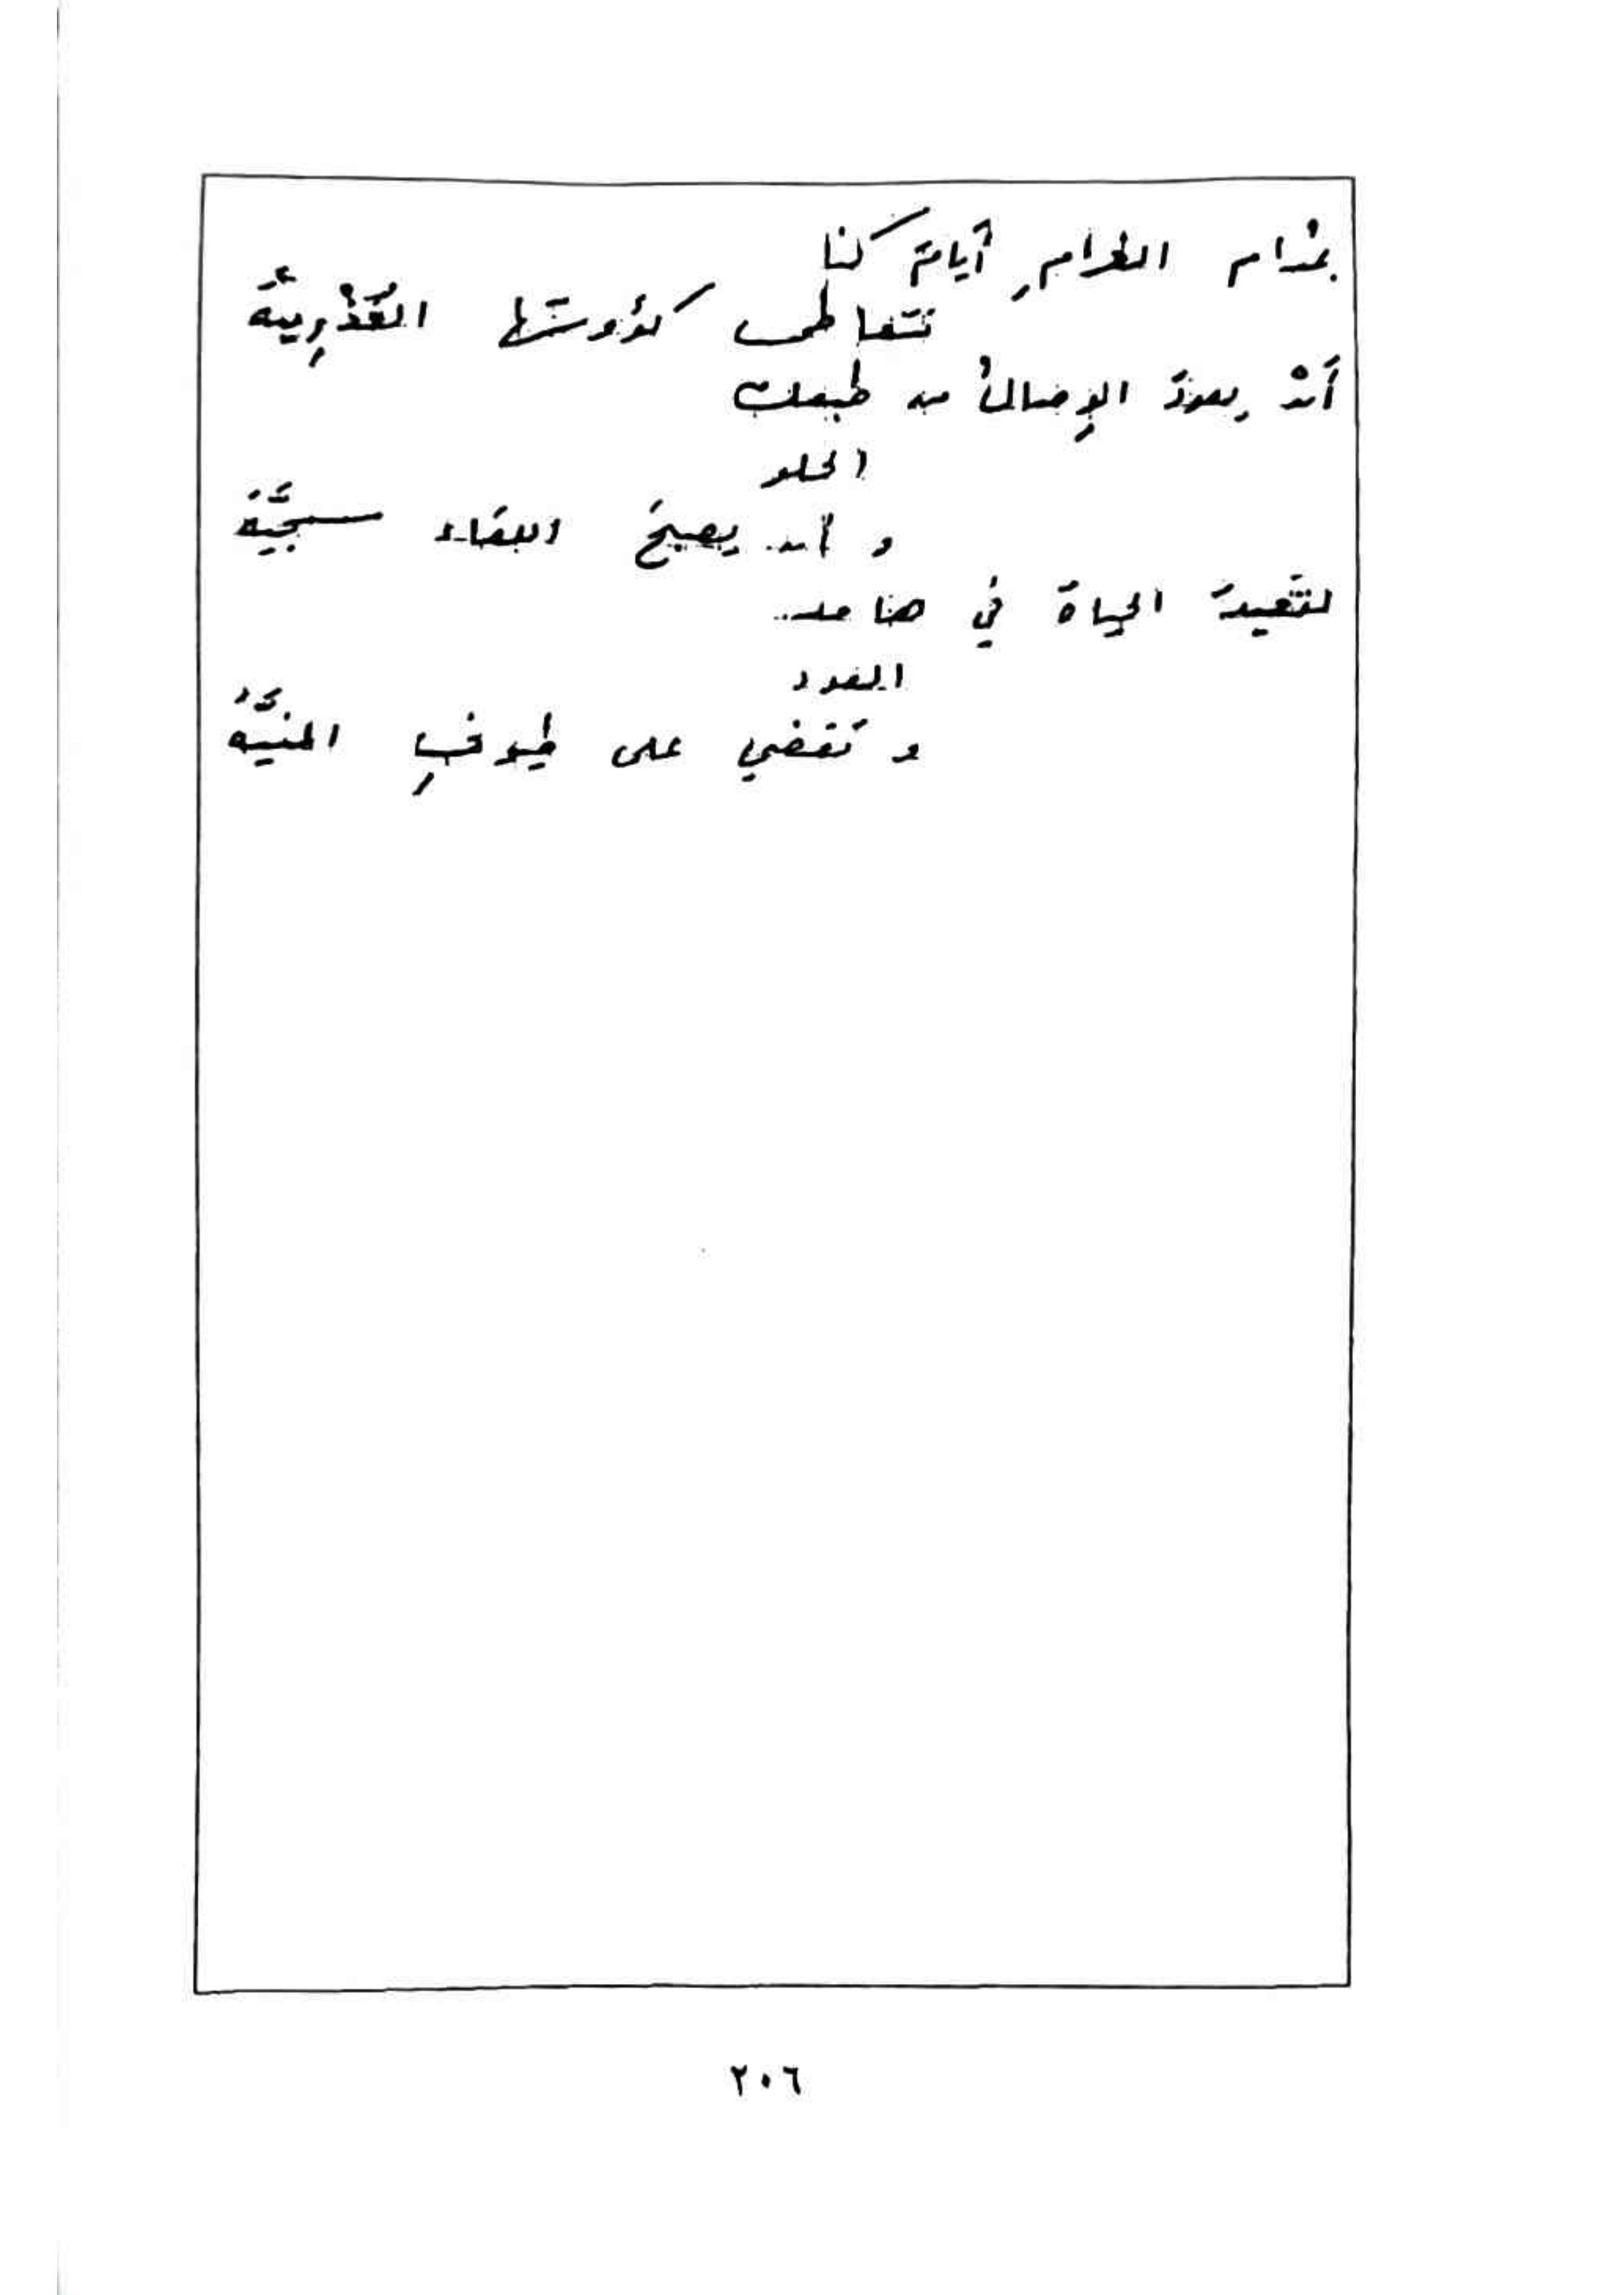 بمُدام الغرامِ أيامَ كنا
نتعاطى كؤوسَها العُذْرِيَّهْ
أنْ يعودَ الوِصالُ من طبعك
الحلو
و أن يصبحَ اللقاء سجيَّهْ
لتُعيدَ الحياةَ في
الغد
و تَقضي على طيوفِ المنيَّهْ
٢٠٦